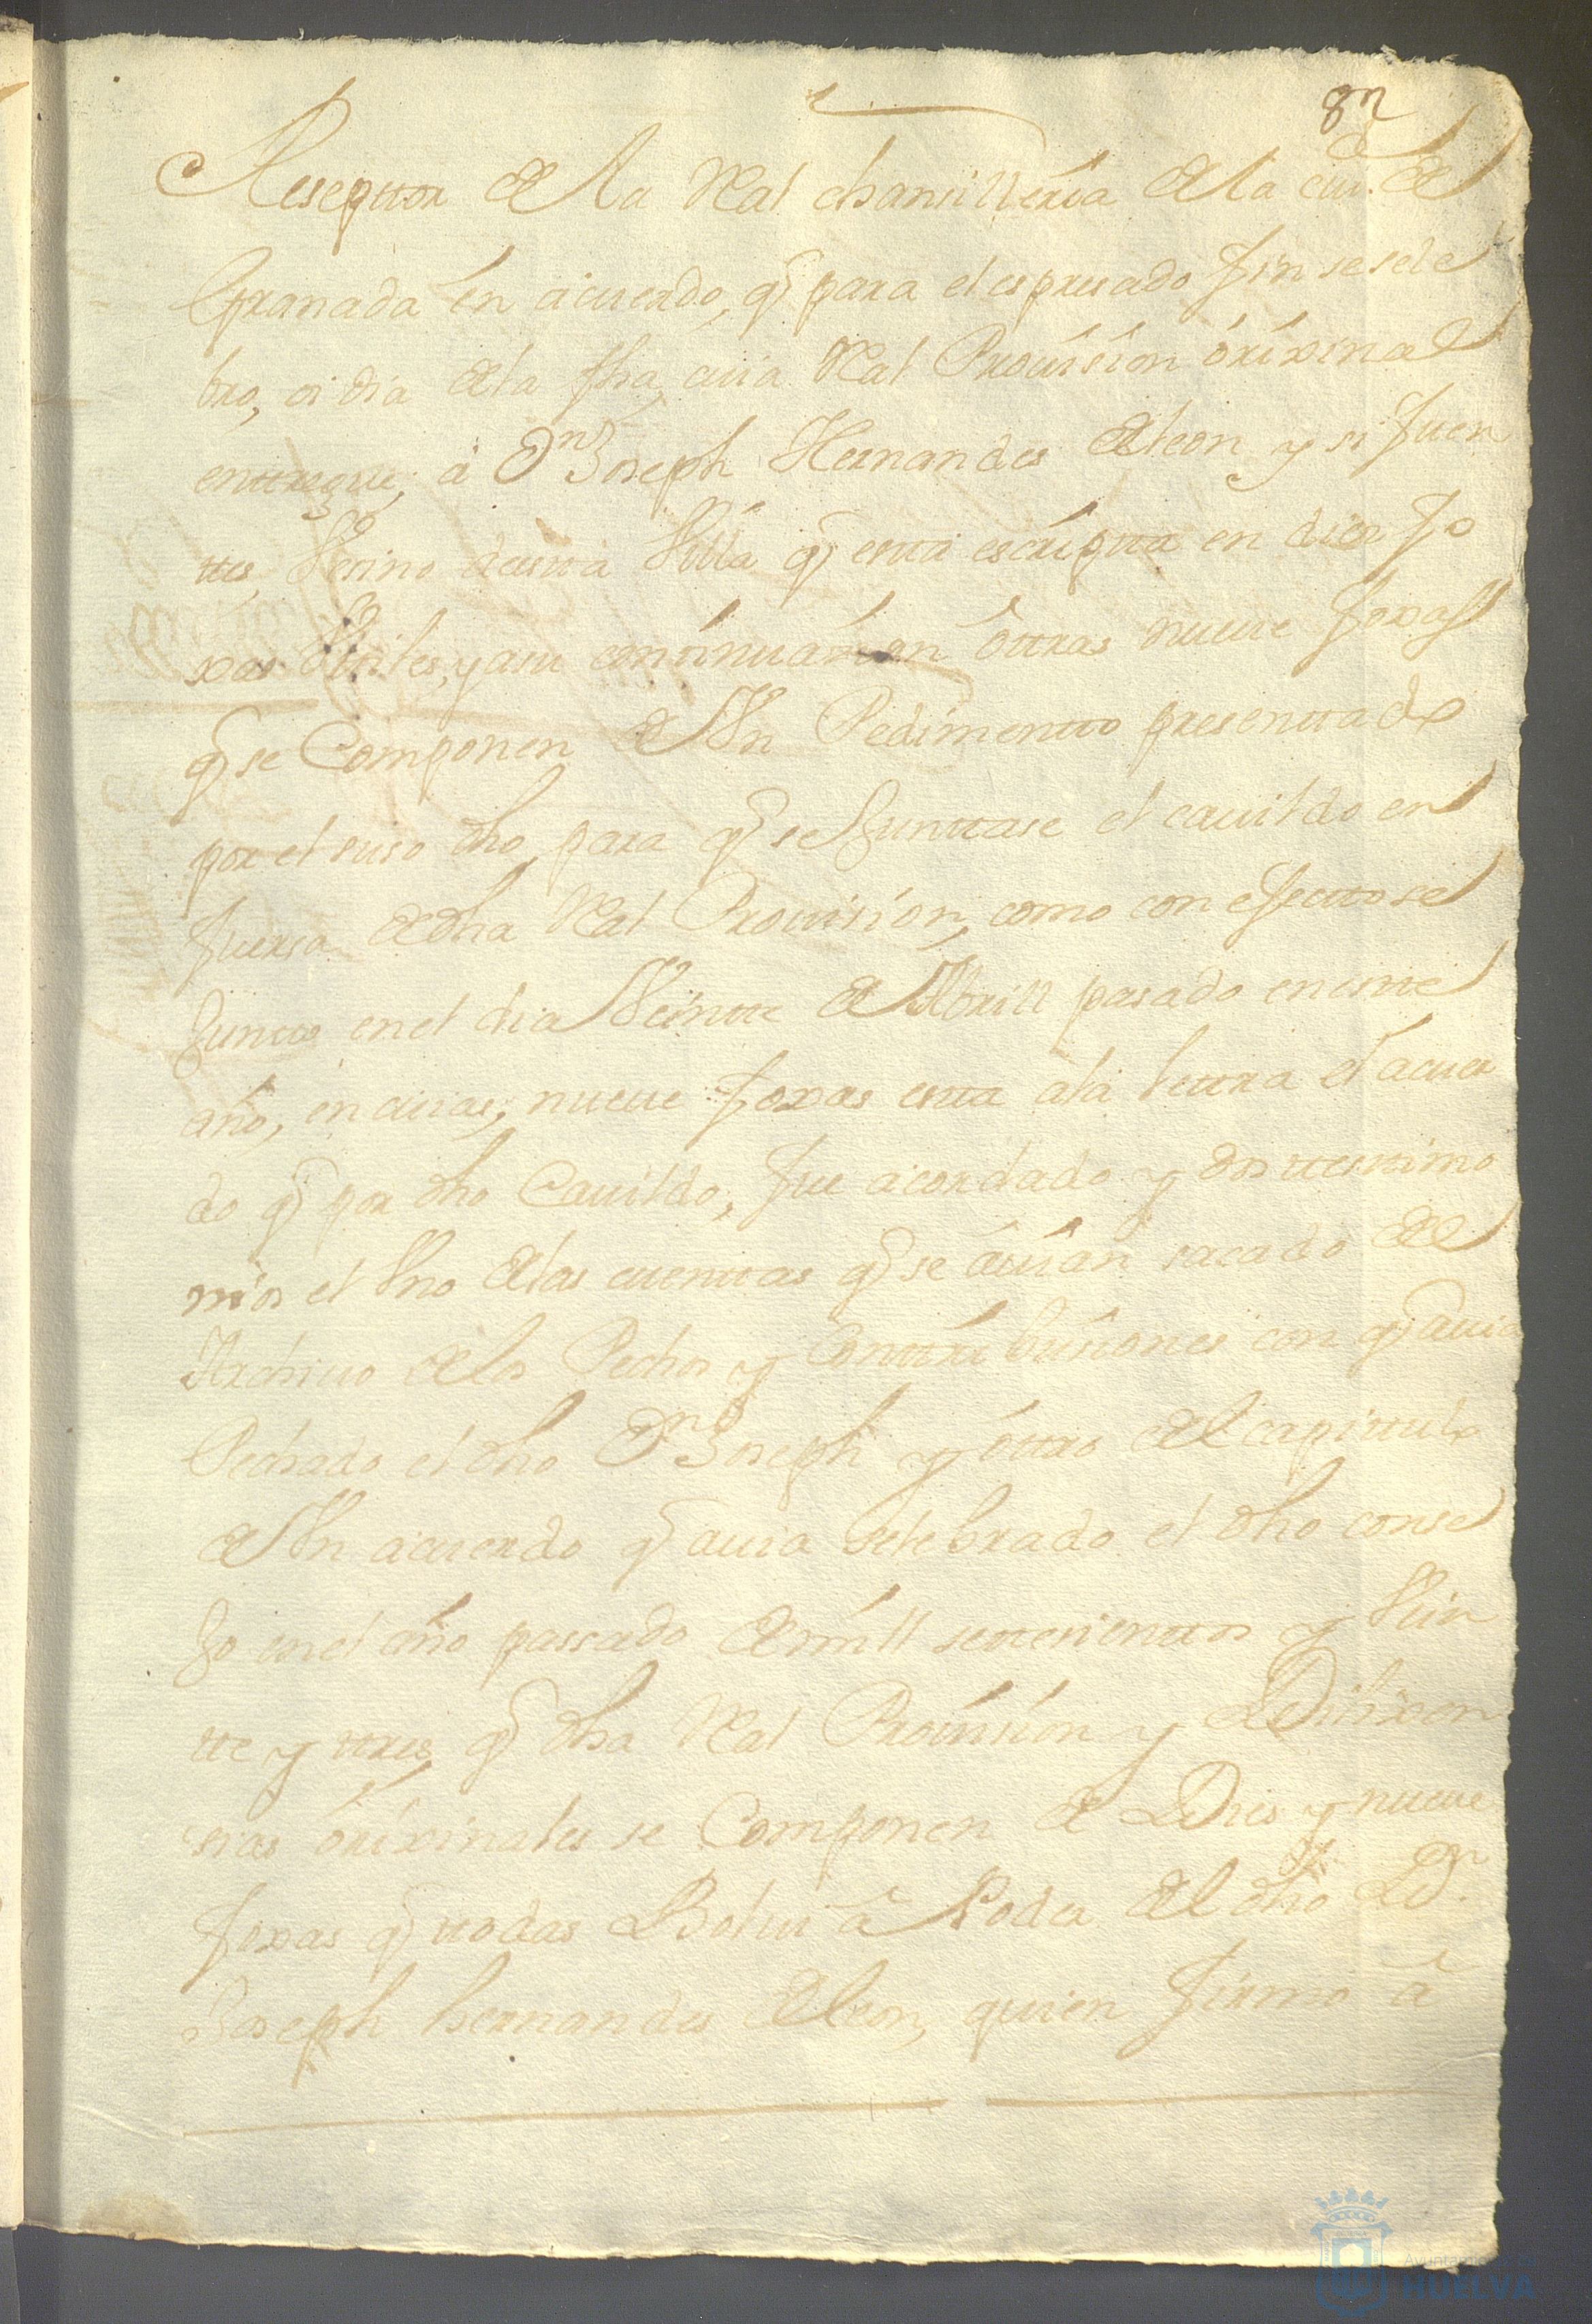 87
Reseptor de la Real chansilleria de la ciud. de
Granada en acuerdo, q para el espresado fin se sele
bro, oi dia de la fha, cuia Real Provision orixinal
enttregue, a Dn Joseph Hernandes de leon y si fuen
tes, Vesino de estta Villa q estta escripta en dies fo
xas Utiles, y a su continuasion ottras nueve foxas
q se Componen de Un Pedimentto presenttado
por el suso dho, para q se Junttase el cavildo en
fuersa de dha Real Provision, como con efectto se
Juntto en el dia Veintte de Abrill pasado en estte
año, en cuias, nueve foxas estta a la lettra el acuer
do q por dho Cavildo, fue acordado y dos ttesttimo
nios el Uno de las cuenttas q se avian sacado del
Archivo de los Pechos y Conttribusiones con q avia
Pechado el dho Dn Joseph y ottro del capittulo
de Un acuerdo q avia selebrado el dho conse
Jo en el año passado de mill settesienttos y Vein
tte y ttres, q dha Real Provision y Dilixen
sias orixinales se Componen de Dies y nueve
foxas q ttodas Bolvi a Poder del dho Dn.
Joseph hernandes de leon, quien firmo a
Ayuntamiento de
HUELVA